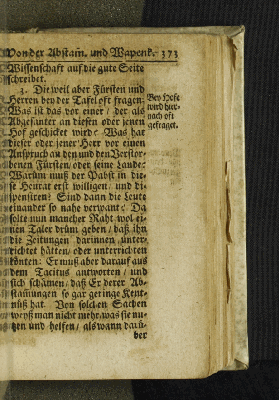 Von der Abstam̃. und Wapenk. 373
Wissenschaft auf die gute Seite
schreibet.
3. Die weil aber Fürsten und
Herren bey der Tafel oft fragen:
Was ist das vor einer / der als
Abgesanter an diesen oder jenen
Hof geschicket wird? Was hat
dieser oder jener Herr vor einen
Anspruch an den und den Verstor-
benen Fürsten / oder seine Lande?
Warum muß der Pabst in die-
se Heurat erst willigen / und di-
spensiren? Sind dann die Leute
einander so nahe verwant? Da
solte nun mancher Raht wol ei-
nen Taler drum geben / daß ihn
die Zeitungen darinnen unter-
richtet hätten / oder unterrichten
könten: Er muß aber darauf aus
dem Tacitus antworten / und
sich schämen / daß Er derer Ab-
stam̃ungen so gar geringe Kent-
nüß hat. Von solchen Sachen
weyß man nicht mehr / was sie nu-
tzen und helfen / als wann darü-
ber
Bey Hofe
wird hier-
nach oft
gefraget.